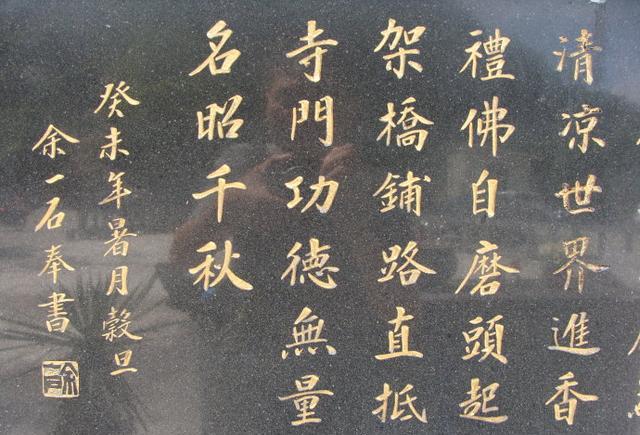 清凉世界進香
禮佛自磨頭起
架橋鋪路直抵
寺門功德無量
名昭千秋
癸未年暑月穀旦
余一石奉書